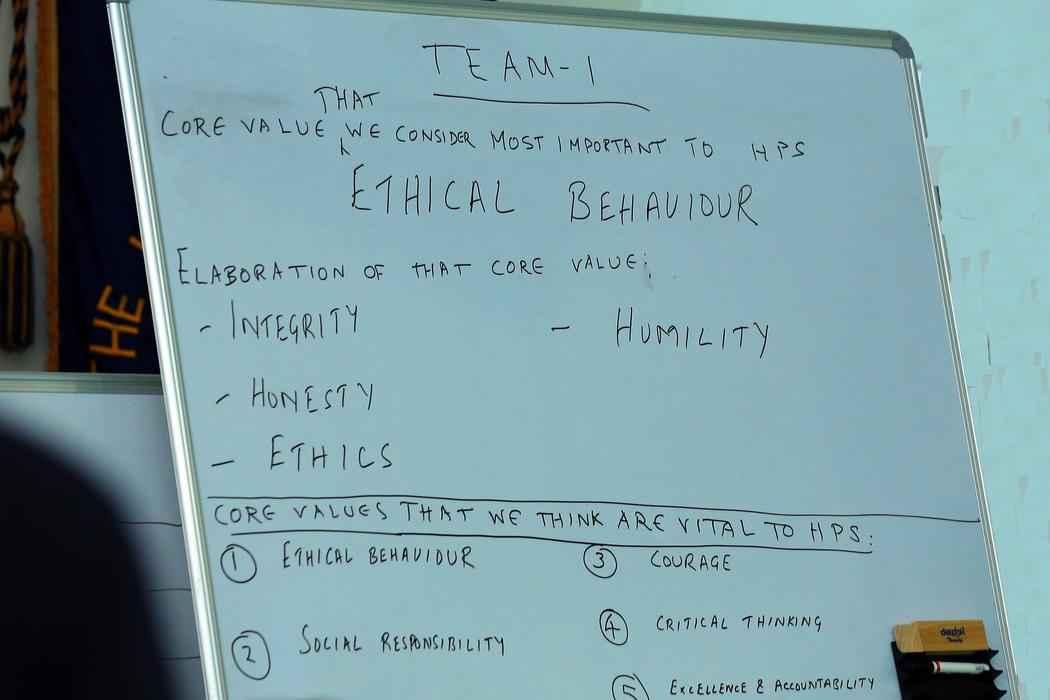 TEAM-1
THAT
CORE VALUE WE CONSIDER MOST IMPORTANT TO HPS
ETHICAL BEHAVIOUR
ELABORATION OF THAT CORE VALUE:
- INTEGRITY
- HUMILITY
- HONESTY
- ETHICS
CORE VALUES THAT WE THINK ARE VITAL TO HPS:
1 ETHICAL BEHAVIOUR
3 COURAGE
2 SOCIAL RESPONSIBILITY
4 CRITICAL THINKING
5 EXCELLENCE & ACCOUNTABILITY
THE